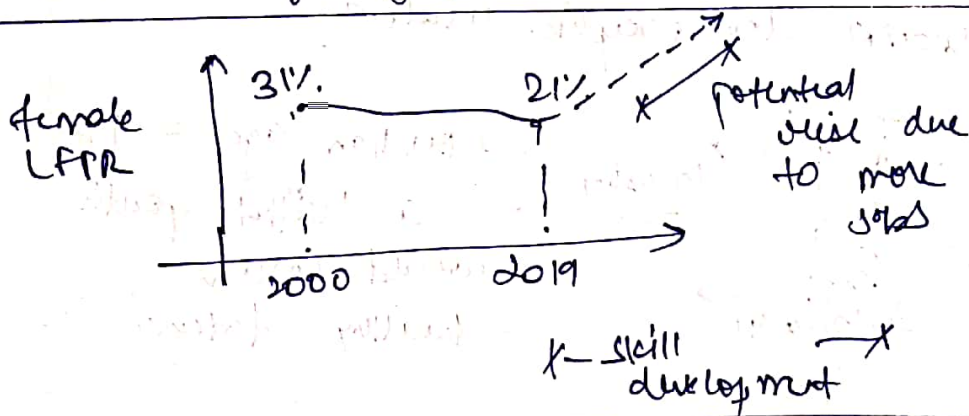 31%.
21%
female
LFPR
potential
rise due
to more
jobs
2000
2019
x— skill —x
development